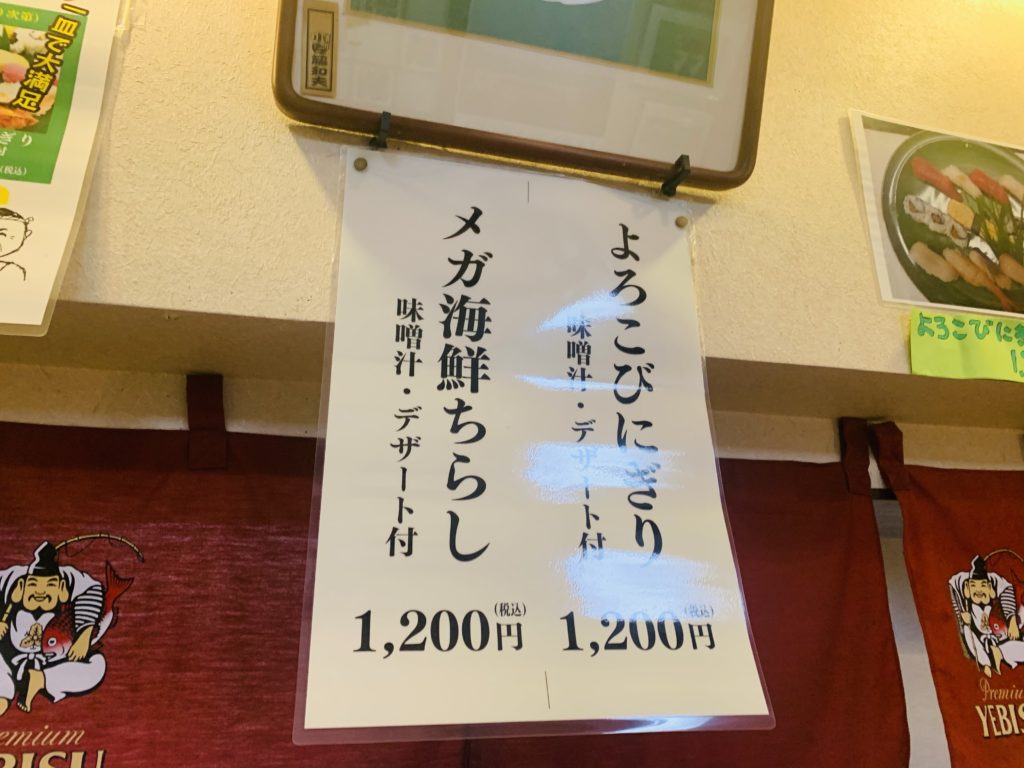 よろこびにぎり
味噌汁・デザート付
1,200円(税込)
メガ海鮮ちらし
味噌汁・デザート付
1,200円(税込)
一皿で大満足
(税込)
よろこびに
Premium
YEBISU